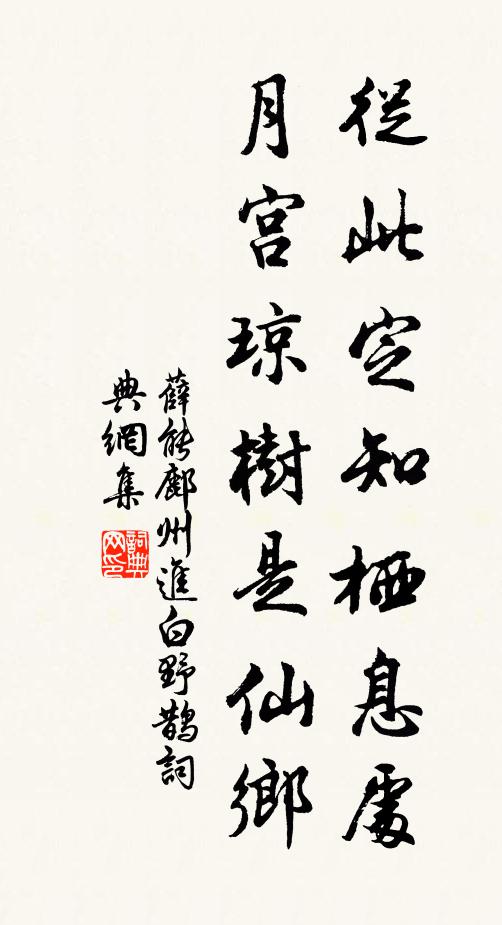 從此定知栖息處
月宫琼樹是仙鄉
薛能鄜州進白野鵲詞
典網集
詞典网印